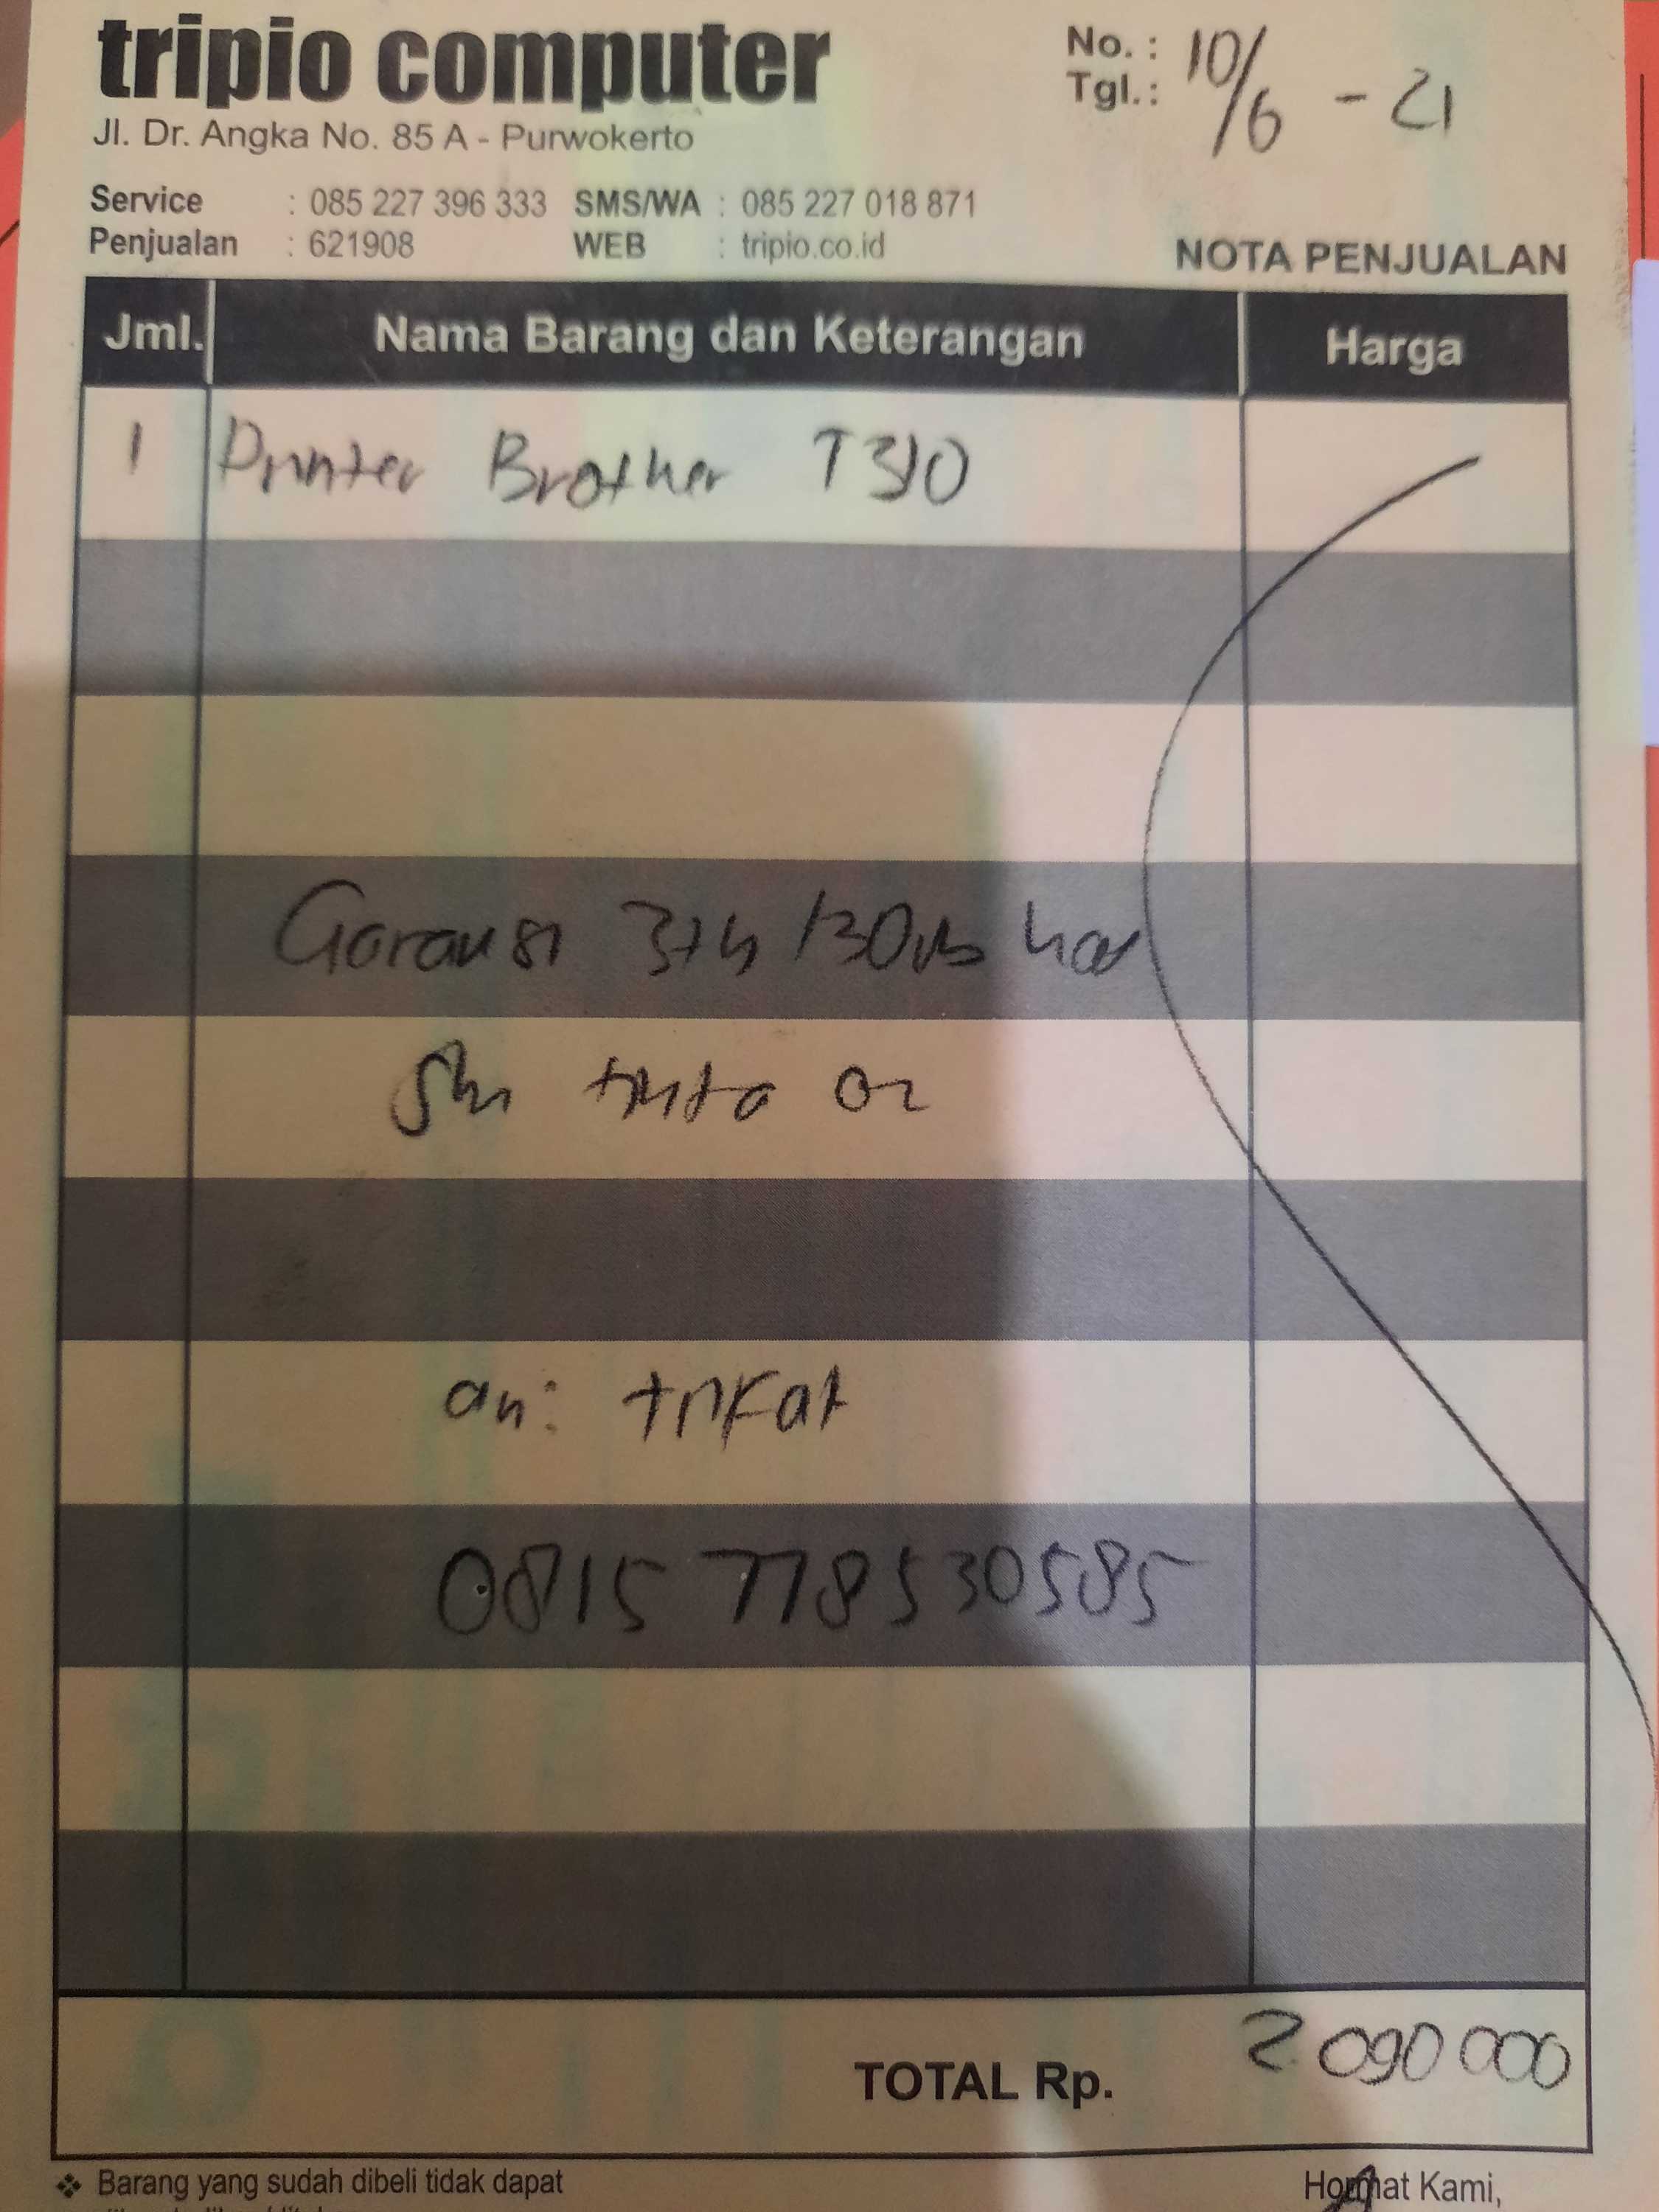 tripio computer
Jl. Dr. Angka No. 85 A - Purwokerto
No. :
Tgl. : 10/6 - 21
Service : 085 227 396 333 SMS/WA : 085 227 018 871
Penjualan : 621908 WEB : tripio.co.id
NOTA PENJUALAN
Jml. Nama Barang dan Keterangan Harga
1 Printer Brother T310
Garansi 3th /30rb
tinta
an: trikat
0815 778530585
TOTAL Rp. 2.090 000
❖ Barang yang sudah dibeli tidak dapat
Hormat Kami,